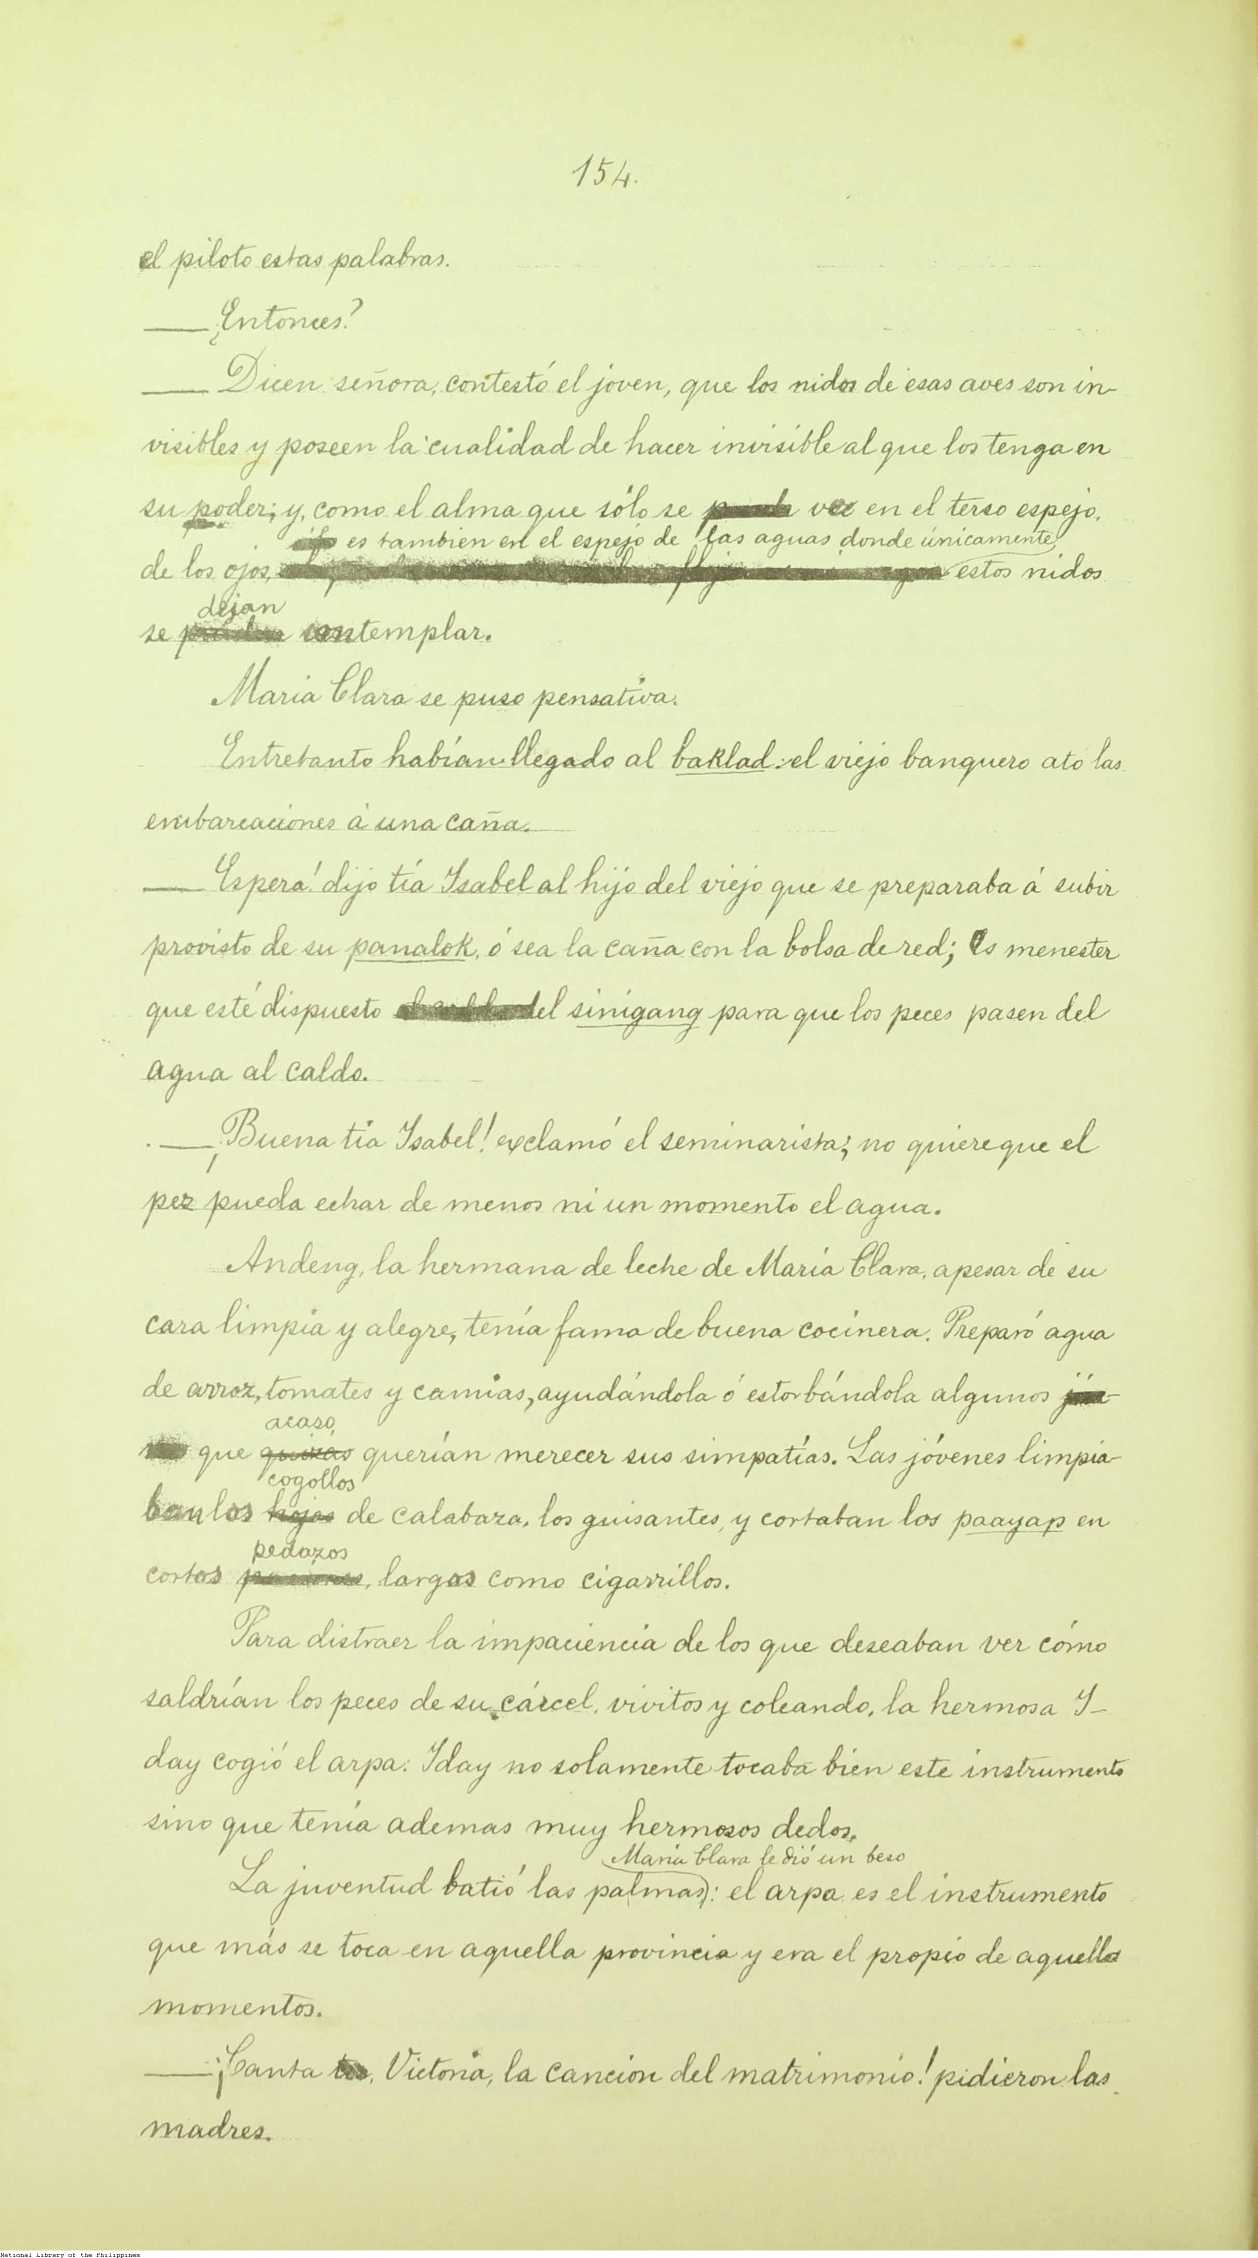 154.
el piloto estas palabras.
—¿Entonces?
— Dicen señora, contestó el joven, que los nidos de esas aves son in-
visibles y poseen la cualidad de hacer invisible al que los tenga en
su poder; y, como el alma que sólo se ve en el terso espejo,
es tambien en el espejo de las aguas donde únicamente
de los ojos, estos nidos
dejan
se contemplar.
Maria Clara se puso pensativa.
Entretanto habían llegado al baklad: el viejo banquero ato las
embarcaciones á una caña.
— Espera! dijo tía Isabel al hijo del viejo que se preparaba á subir
provisto de su panalok, ó sea la caña con la bolsa de red; Es menester
que esté dispuesto el sinigang para que los peces pasen del
agua al caldo.
—¡Buena tía Isabel! exclamó el seminarista; no quiere que el
pez pueda echar de menos ni un momento el agua.
Andeng, la hermana de leche de María Clara, apesar de su
cara limpia y alegre, tenía fama de buena cocinera. Preparó agua
de arroz, tomates y camias, ayudándola ó estorbándola algunos
acaso,
que quizas querían merecer sus simpatías. Las jóvenes limpia-
cogollos
ban los hojas de calabaza, los guisantes, y cortaban los paayap en
pedazos
cortos , largos como cigarrillos.
Para distraer la impaciencia de los que deseaban ver cómo
saldrían los peces de su cárcel, vivitos y coleando, la hermosa I-
day cogió el arpa. Iday no solamente tocaba bien este instrumento
sino que tenía ademas muy hermosos dedos.
María Clara le dió un beso
La juventud batió las palmas): el arpa es el instrumento
que más se toca en aquella provincia y era el propio de aquellos
momentos.
—¡Canta , Victoria, la canción del matrimonio! pidieron las
madres.
National Library of the Philippines